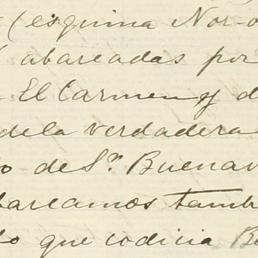 (esquina Nor-o
abarcadas por
El Carmen y d
de la verdadera
o de Sn. Buenav
barcamos tamb
to que codicia Be